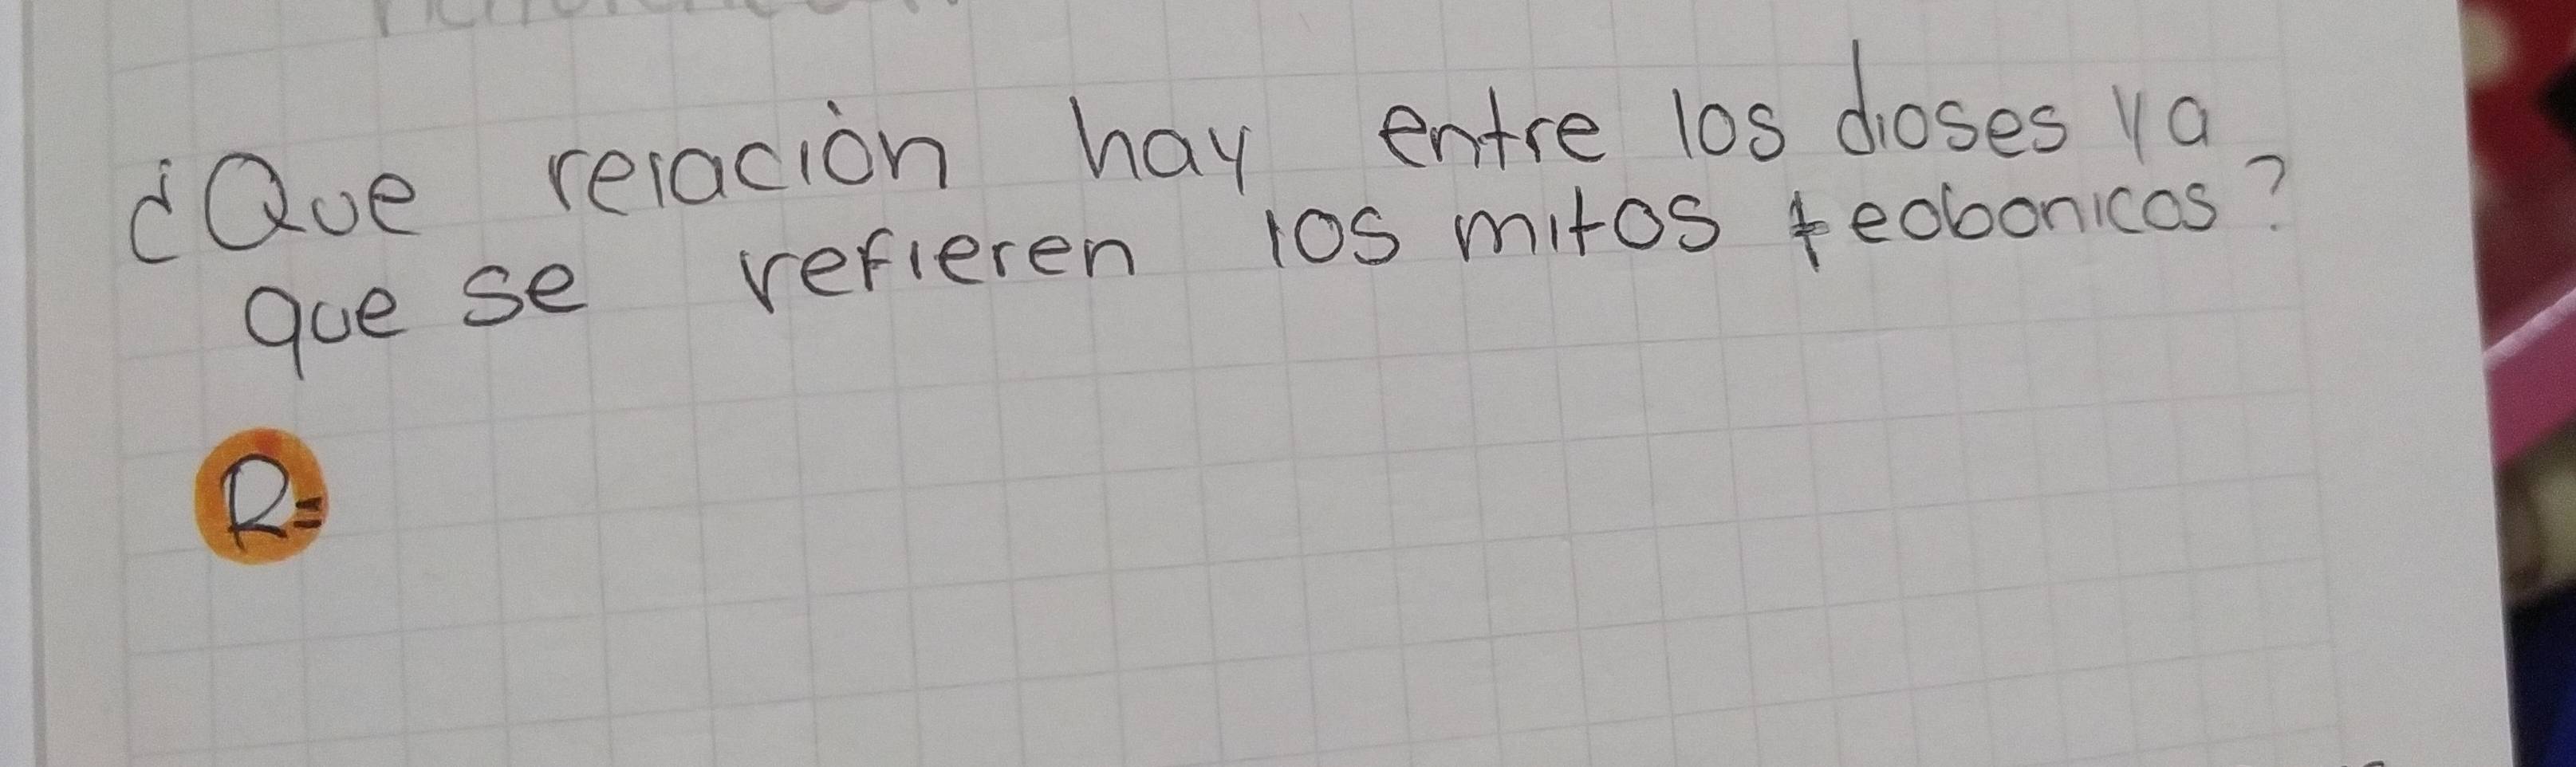 ¿Que relación hay entre los dioses y a
que se refieren los mitos teobonicos?
R=